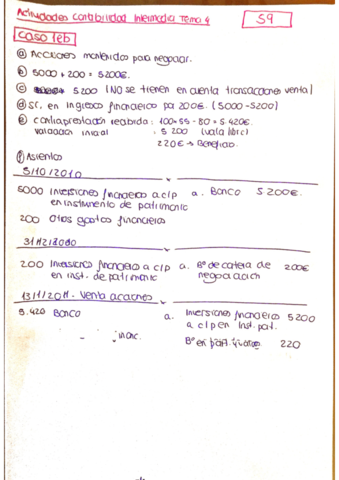 Actividades Contabilidad Intermedia Tema 4
59
CASO 1eb
ⓐ Acciones mantenidas para negociar.
ⓑ 5000 + 200 = 5200€.
ⓒ 5200 (NO se tienen en cuenta transacciones venta)
ⓓ SI. en ingresos financieros por 200€. (5000-5200)
ⓔ contraprestación recibida: 100×55 - 80 = 5.420€.
valoración inicial : 5200 (valor libro)
220€ → Beneficio.
ⓕ Asientos
5/10/2010
5000 Inversiones financieras a c/p a. Banco 5200€.
en instrumento de patrimonio
200 Otros gastos financieros
31/12/2010
200 Inversiones financieras a c/p a. Bº de cartera de 200€
en inst. de patrimonio negociación
13/1/2011. Venta acciones
5.420 Banco a. Inversiones financieras 5200
a c/p en Inst. pat.
Bº en part. 220